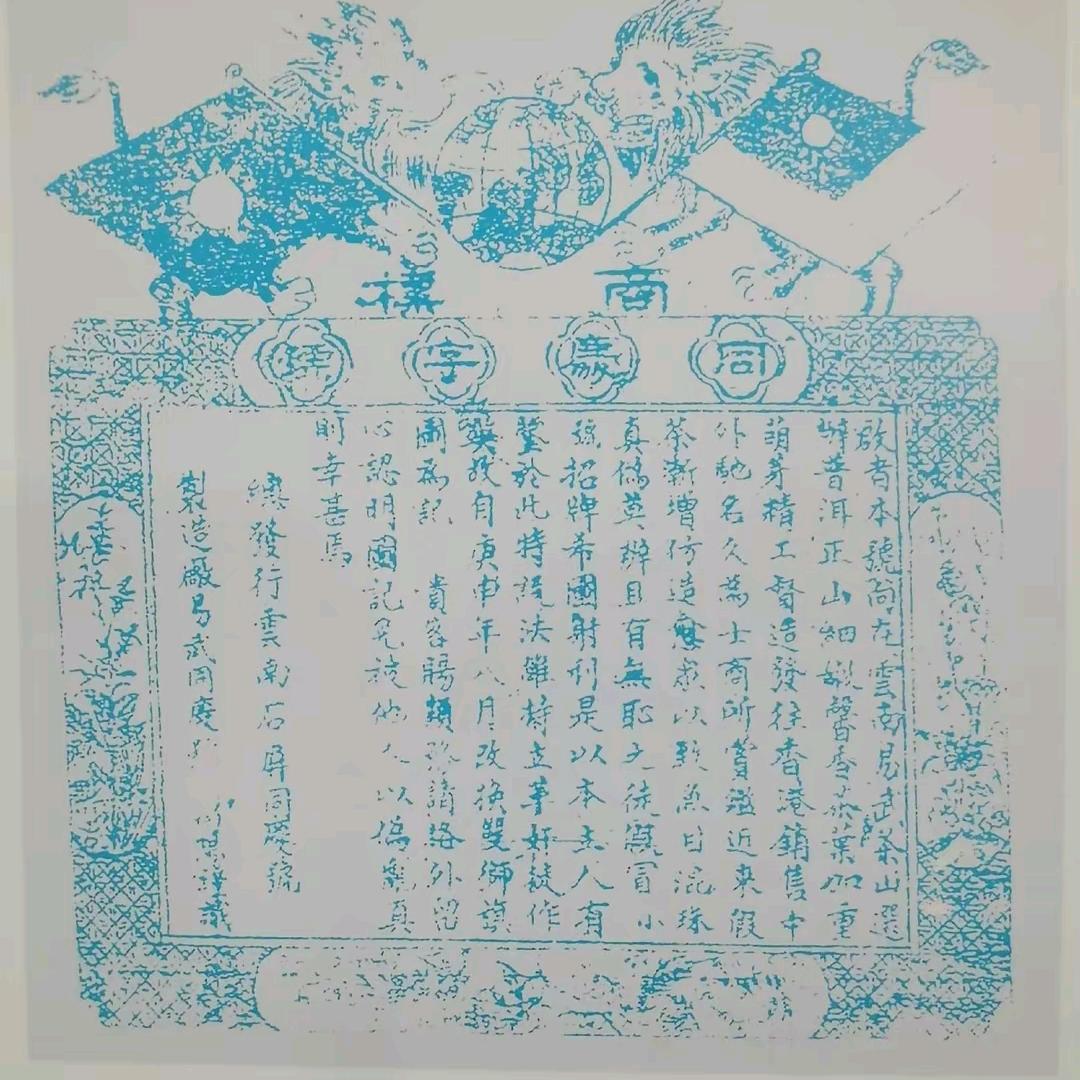 商標
同慶字號
啟者本號向在雲南易武茶山選
辦普洱正山細嫩馨香茶葉加重
萌芽精工督造發往香港銷售中
外馳名久為士商所賞鑑近來假
茶漸增仿造愈衆以致魚目混珠
真偽莫辦且有無恥之徒冒小
號招牌希圖射利是以本主人有
鑒於此特設法維持立革奸徒作
弊故自庚申年八月改換雙獅旗
圖為記 貴客賜顧務請格外留
心認明圖記免被他人以偽亂真
則幸甚焉
總發行雲南石屏同慶號
製造廠易武同慶 謹識